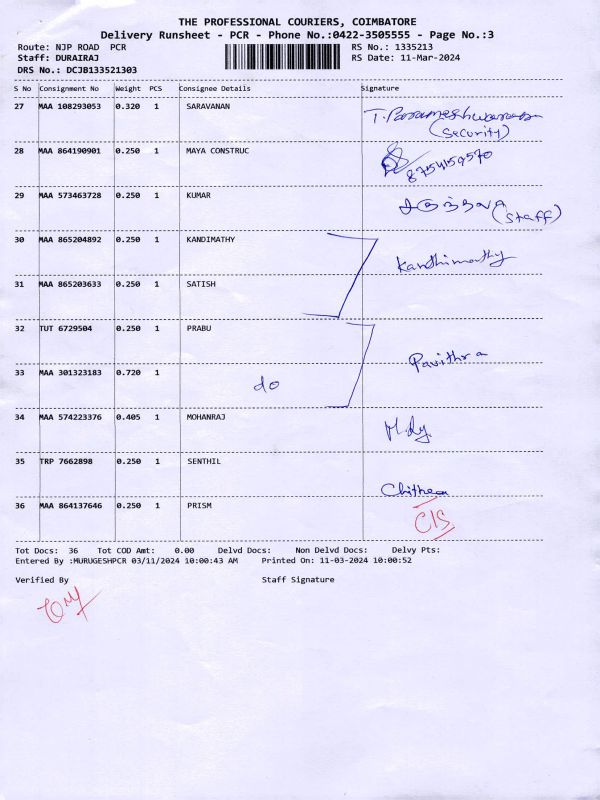 THE PROFESSIONAL COURIERS, COIMBATORE
Delivery Runsheet - PCR - Phone No.:0422-3505555 - Page No.:3
Route: NJP ROAD PCR RS No.: 1335213
Staff: DURAIRAJ RS Date: 11-Mar-2024
DRS No.: DCJB133521303
S No Consignment No Weight PCS Consignee Details Signature
27 MAA 108293053 0.320 1 SARAVANAN
(Security)
28 MAA 864190901 0.250 1 MAYA CONSTRUC
8754159570
29 MAA 573463728 0.250 1 KUMAR
(Staff)
30 MAA 865204892 0.250 1 KANDIMATHY
Kanthimathy
31 MAA 865203633 0.250 1 SATISH
32 TUT 6729504 0.250 1 PRABU
Pavithra
33 MAA 301323183 0.720 1
do
34 MAA 574223376 0.405 1 MOHANRAJ
35 TRP 7662898 0.250 1 SENTHIL
Chithra
36 MAA 864137646 0.250 1 PRISM
C/S
Tot Docs: 36 Tot COD Amt: 0.00 Delvd Docs: Non Delvd Docs: Delvy Pts:
Entered By :MURUGESHPCR 03/11/2024 10:00:43 AM Printed On: 11-03-2024 10:00:52
Verified By Staff Signature